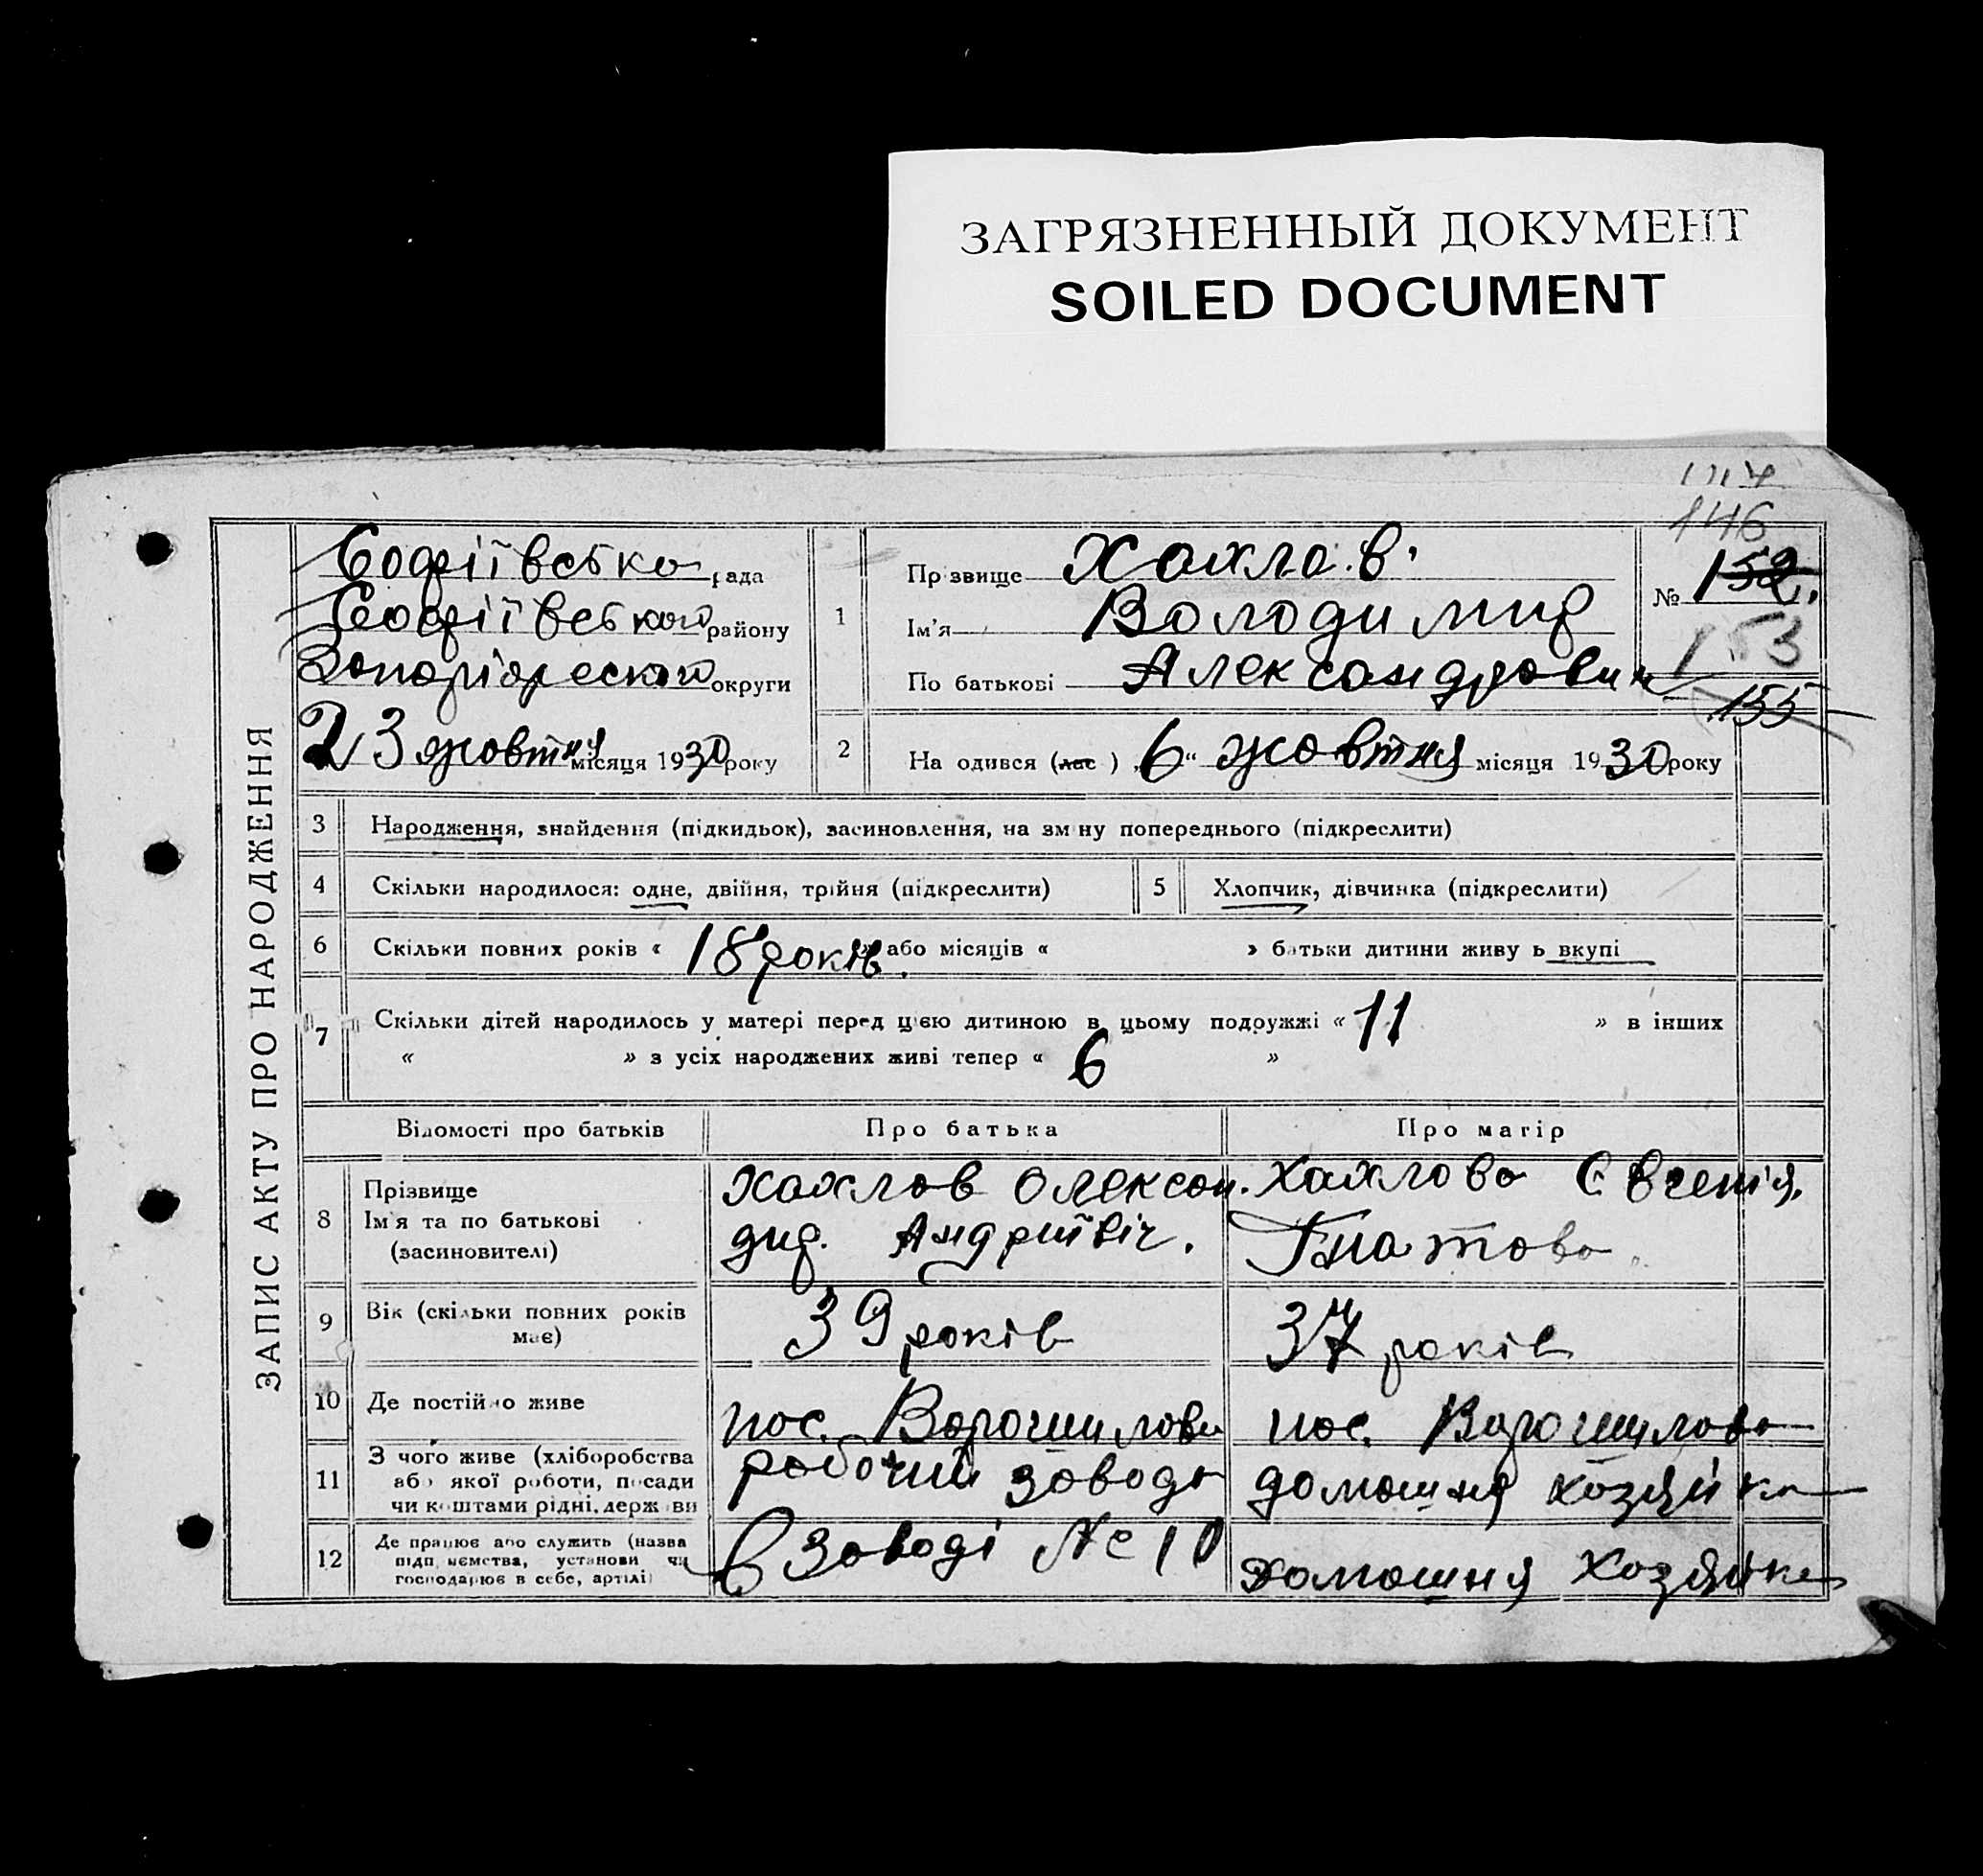 ЗАГРЯЗНЕННЫЙ ДОКУМЕНТ
SOILED DOCUMENT
146
ЗАПИС АКТУ ПРО НАРОДЖЕННЯ
Софіївська рада
Софіївського району
округи
23 жовтня місяця 1930 року
1
Прзвище Хахлов
Ім'я Володимир
По батькові Александрович
№ 152.
153
155
2
На одився (лас ) „6“ жовтня місяця 1930 року
3 Народження, знайдення (підкидьок), засиновлення, на зм ну попереднього (підкреслити)
4 Скільки народилося: одне, двійня, трійня (підкреслити)
5 Хлопчик, дівчинка (підкреслити)
6 Скільки повних років « 18 років » або місяців « » батьки дитини живу ь вкупі
7 Скільки дітей народилось у матері перед цією дитиною в цьому подружжі « 11 » в інших
« » з усіх народжених живі тепер « 6 »
Відомості про батьків Про батька Про матір
8 Прізвище
Ім'я та по батькові
(засиновителі)
Хахлов Олексан.
дир. Андрийвіч.
Хахлова Євгенія.
Гнатова.
9 Вік (скільки повних років
має)
39 років
37 років
10 Де постійно живе
пос. Ворошилова
пос. Ворошилова
11 З чого живе (хліборобства
або якої роботи, посади
чи коштами рідні, держ ви
робочий завода
домашня хозяйка
12 Де працює або служить (назва
підп иємства, установи чи
господарює в себе, артілі)
в заводі № 10
домашня хозяйка